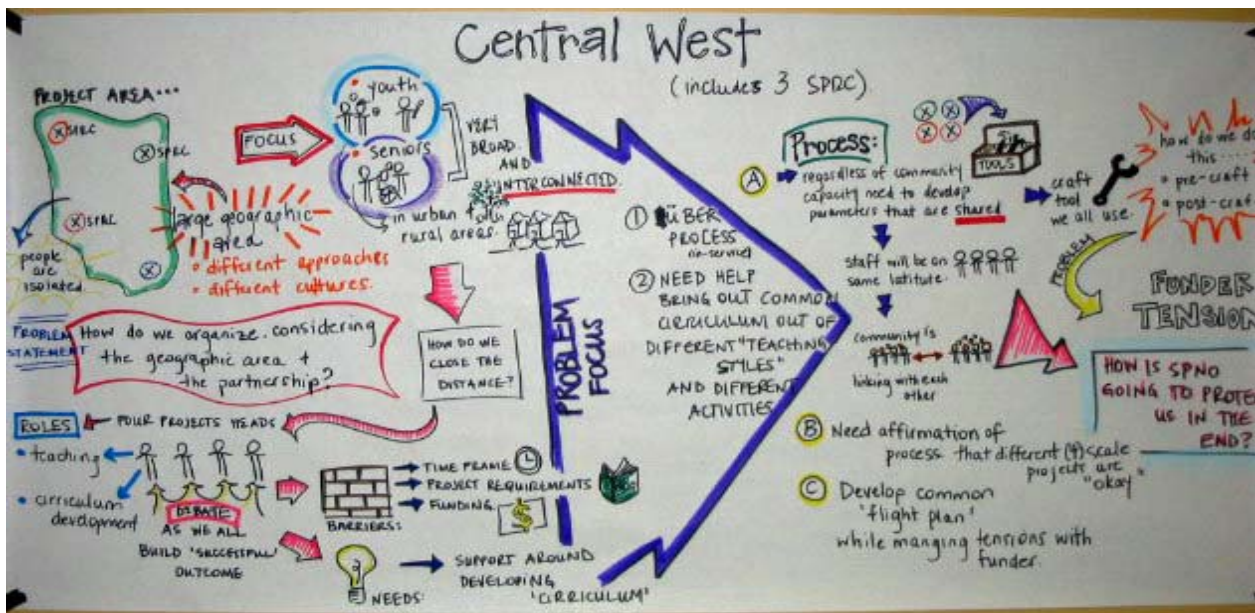 Central West
(includes 3 SPRC)
PROJECT AREA...
SPRC
SPRC
SPRC
people are
isolated
large geographic
area
• different approaches
• different cultures.
FOCUS
• youth
• seniors
VERY
BROAD
AND
INTERCONNECTED.
in urban +
rural areas.
PROBLEM
STATEMENT
How do we organize considering
the geographic area +
the partnership?
HOW DO WE
CLOSE THE
DISTANCE?
ROLES
FOUR PROJECTS HEADS
• teaching
• cirriculum
development
DEBATE
AS WE ALL
BUILD 'SUCCESSFUL'
OUTCOME
BARRIERS:
TIME FRAME
PROJECT REQUIREMENTS
FUNDING
$
NEEDS:
SUPPORT AROUND
DEVELOPING
'CIRRICULUM'
PROBLEM
FOCUS
① ÜBER
PROCESS
② NEED HELP
BRING OUT COMMON
CIRRICULUM OUT OF
DIFFERENT "TEACHING
STYLES"
AND DIFFERENT
ACTIVITIES
Process:
TOOLS
A
regardless of community
capacity need to develop
parameters that are shared
craft
tool
we all use.
how do we do
this....
• pre-craft
• post-craft
staff will be on
same latitute.
community is
linking with each
other
PROBLEM
FUNDER
TENSION
HOW IS SPNO
GOING TO PROTE
US IN THE
END?
B Need affirmation of
process that different (4) scale
projects are
"okay"
C Develop common
'flight plan'
while manging tensions with
funder.